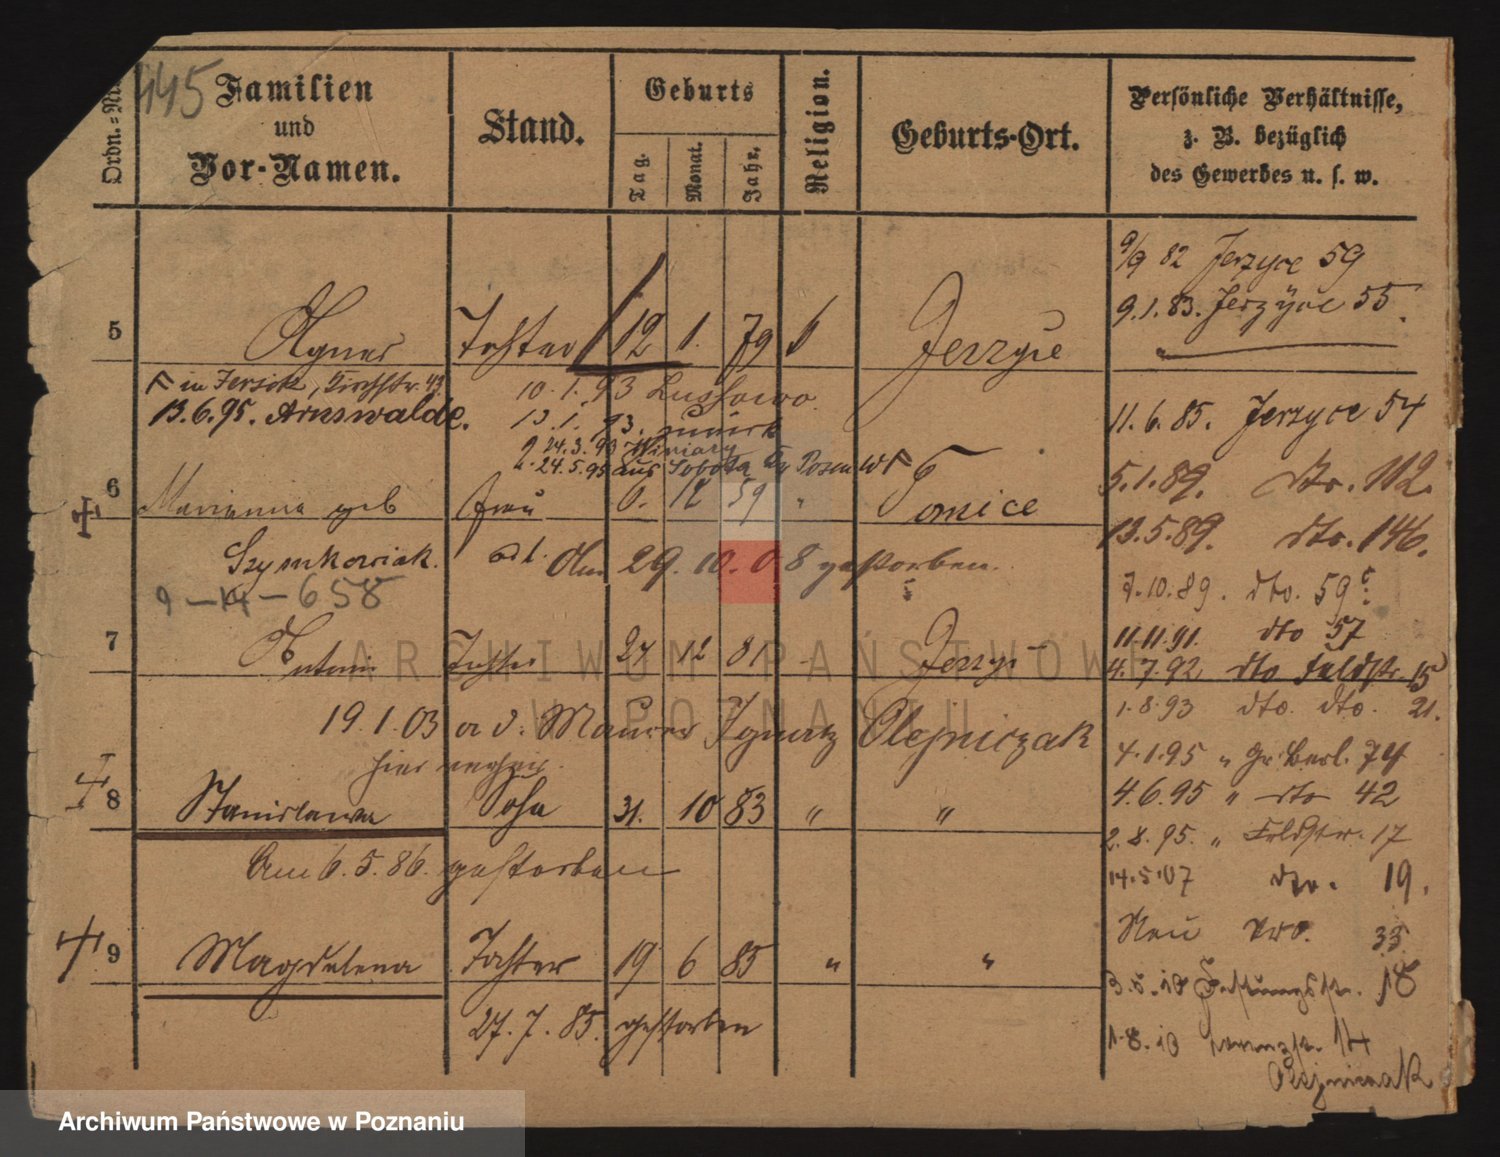 445
Ordn.=Nr.
Familien
und
Vor-Namen.
Stand.
Geburts
Tag.
Monat.
Jahr.
Religion.
Geburts-Ort.
Persönliche Verhältnisse,
z. B. bezüglich
des Gewerbes u. s. w.
5 Agnes Tochter 12 1. 79 Jerzyce
9/9 82 Jerzyce 59
9.1.83. Jerzyce 55.
in Jersitz, Kirchstr. 43.
13.6.95. Arnswalde.
10.1.93 Lussowo
13.1.93. zurück
24.3.93 Winiary
24.5.95 aus Sobota Kr Posen W
6 Marianna geb Frau 6. 12 59 " Tomice
Szymkowiak.
Am 29.10.08 gestorben.
9-14-658
7 Antonie Tochter 27 12 81 Jerzyce
19.1.03 a. d. Maurer Ignatz Olejniczak
hier
8 Stanislawa Sohn 31. 10 83 " "
Am 6.5.86. gestorben
9 Magdalena Tochter 19 6 85 " "
27.7.85. gestorben
11.6.85. Jerzyce 54
5.1.89. dto. 112.
13.5.89. dto. 146.
7.10.89. dto. 59
11.11.91. dto 57
4.7.92 dto Feldstr. 15
1.8.93 dto. dto. 21.
4.1.95 " Gr Berl. 74
4.6.95 " dto 42
2.8.95. " Feldstr. 17
14.5.07 dto. 19.
Neu No. 33
3.5.10 Festungsstr. 18
1.8.10 14
Olejniczak
ARCHIWUM PAŃSTWOWE
W POZNANIU
Archiwum Państwowe w Poznaniu